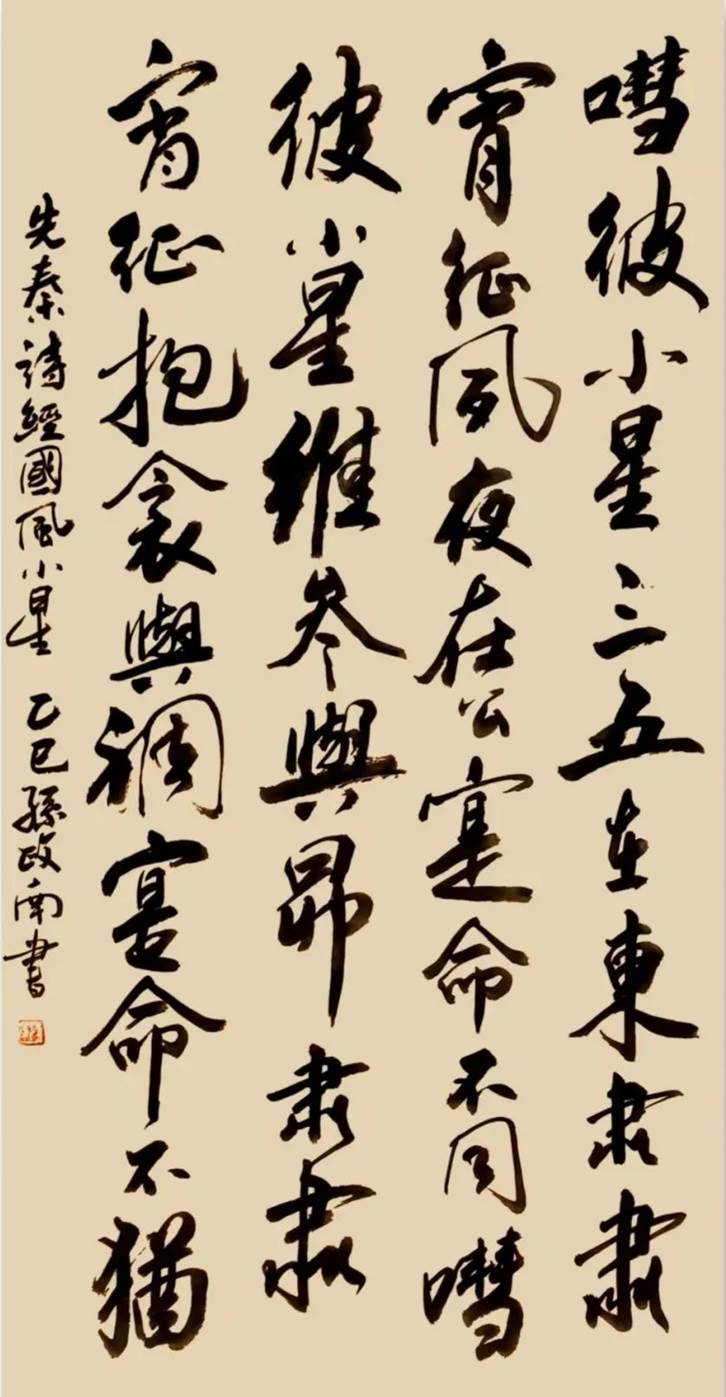 嘒彼小星三五在東肅肅
宵征夙夜在公寔命不同嘒
彼小星維參與昴肅肅
宵征抱衾與裯寔命不猶
先秦詩經國風小星 乙巳孫政南書